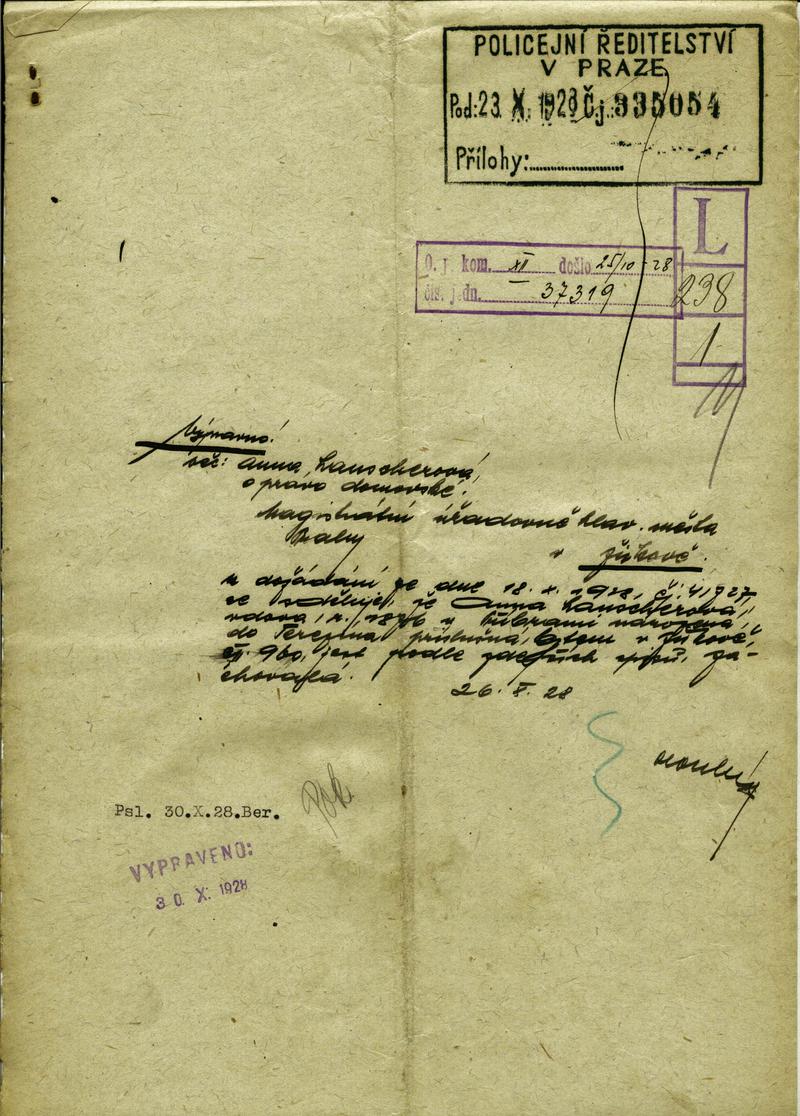 POLICEJNÍ ŘEDITELSTVÍ
V PRAZE
Pod: 23. X. 1928 Čj.: 335054
Přílohy:
L
238
1
O. ř. kom. XII došlo 25/10-28
čís. jedn. 37319
Věc: Anna Lauscherová,
o právo domovské.
Magistrátní úřadovně hlav. města
Prahy
v Žižkově.
K dožádání ze dne 18. X. 1928, č. 41927
se sděluje, že Anna Lauscherová,
vdova, r. 1876 v Příbrami narozená,
do Terezína příslušná, bytem v Žižkově,
čp. 960, jest podle zdejších spisů, za-
chovalá.
26. X. 28
Psl. 30.X.28.Ber.
VYPRAVENO:
30. X. 1928